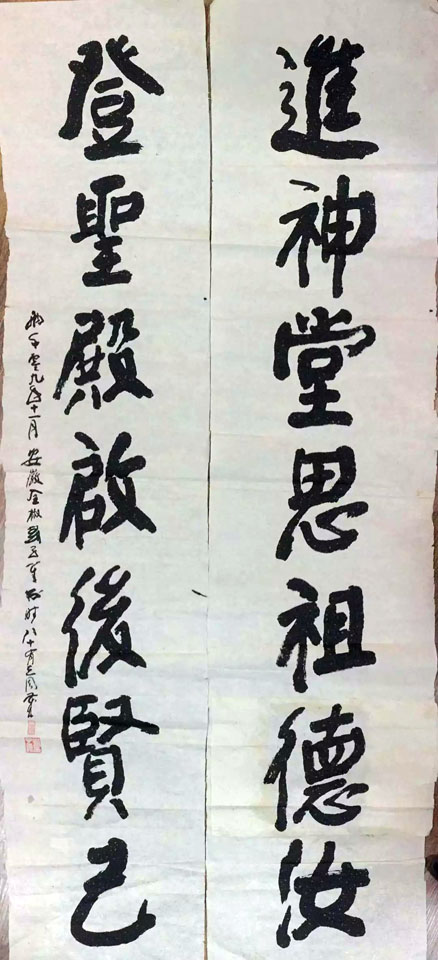 進神堂思祖德汝
登聖殿啟後賢己
零九年十一月 安徽全椒 時八十有三